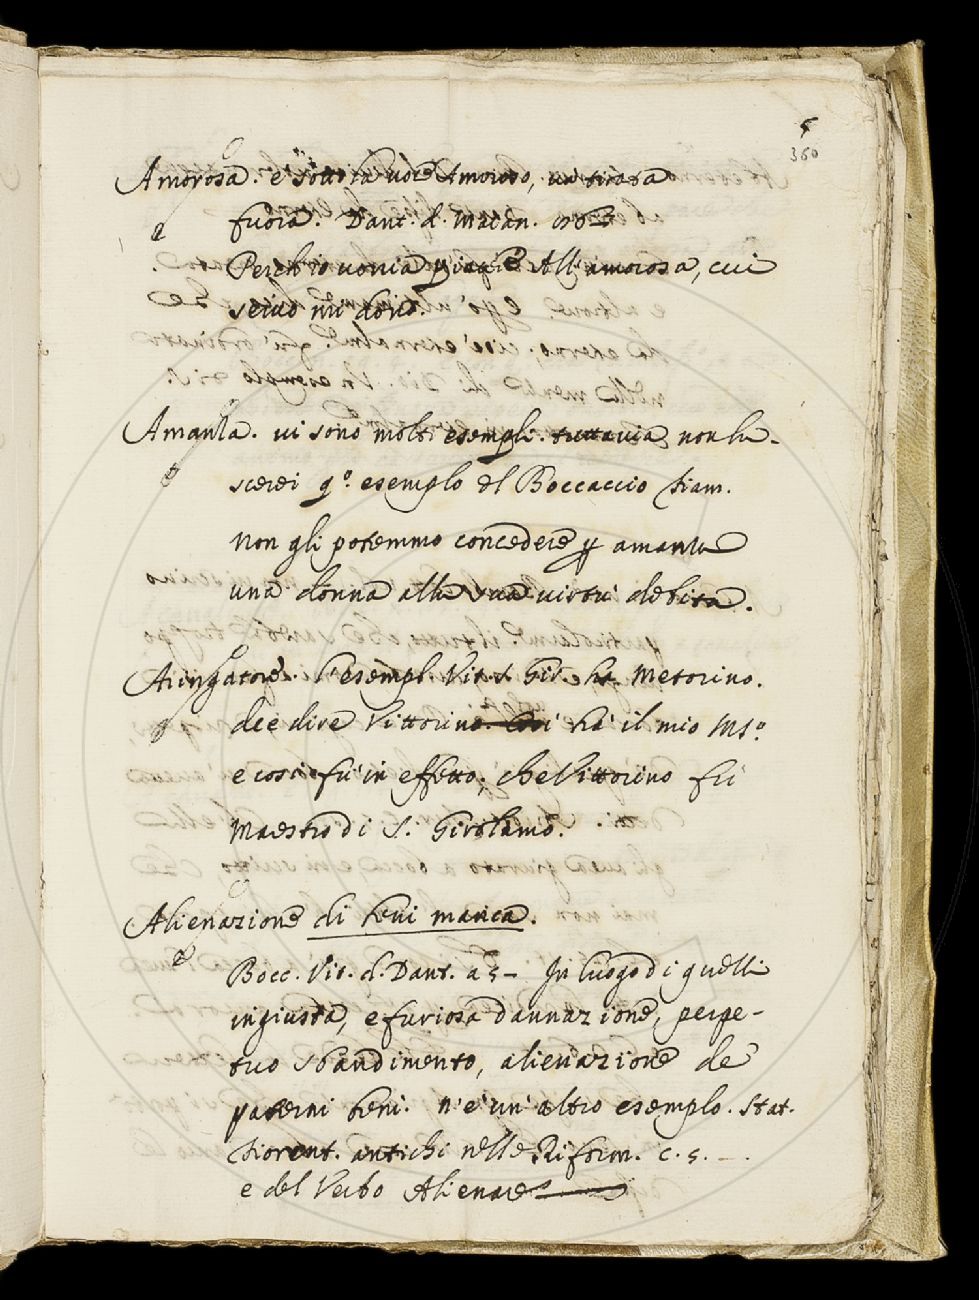 5
360
Amorosa. e sotto la voce Amoroso, va tirata
fuora. Dant. d. Maian.
Perch'io vorria piagire All'amorosa, cui
servo mi dono.
Amanza. vi sono molti esempli. tuttavia non la-
scerei q.o esemplo del Boccaccio fiam.
Non gli potemmo concedere p amanza
una donna alla sua virtù debita.
Aringatore. l'esempl. Vit. S. Gir. ha Metorino.
dee dire Vittorino. Così ha il mio Ms.o
e così fu in effetto; che Vittorino fu
Maestro di S. Girolamo.
Alienazione di beni manca.
Bocc. Vit. d. Dant. a 5 - In luogo di quelli
ingiusta, e furiosa dannazione, perpe-
tuo sbandimento, alienazione de'
paterni beni. n'è un'altro esemplo. Stat.
fiorent. antichi nelle Riform. c. 5. -.
e del Verbo Alienare